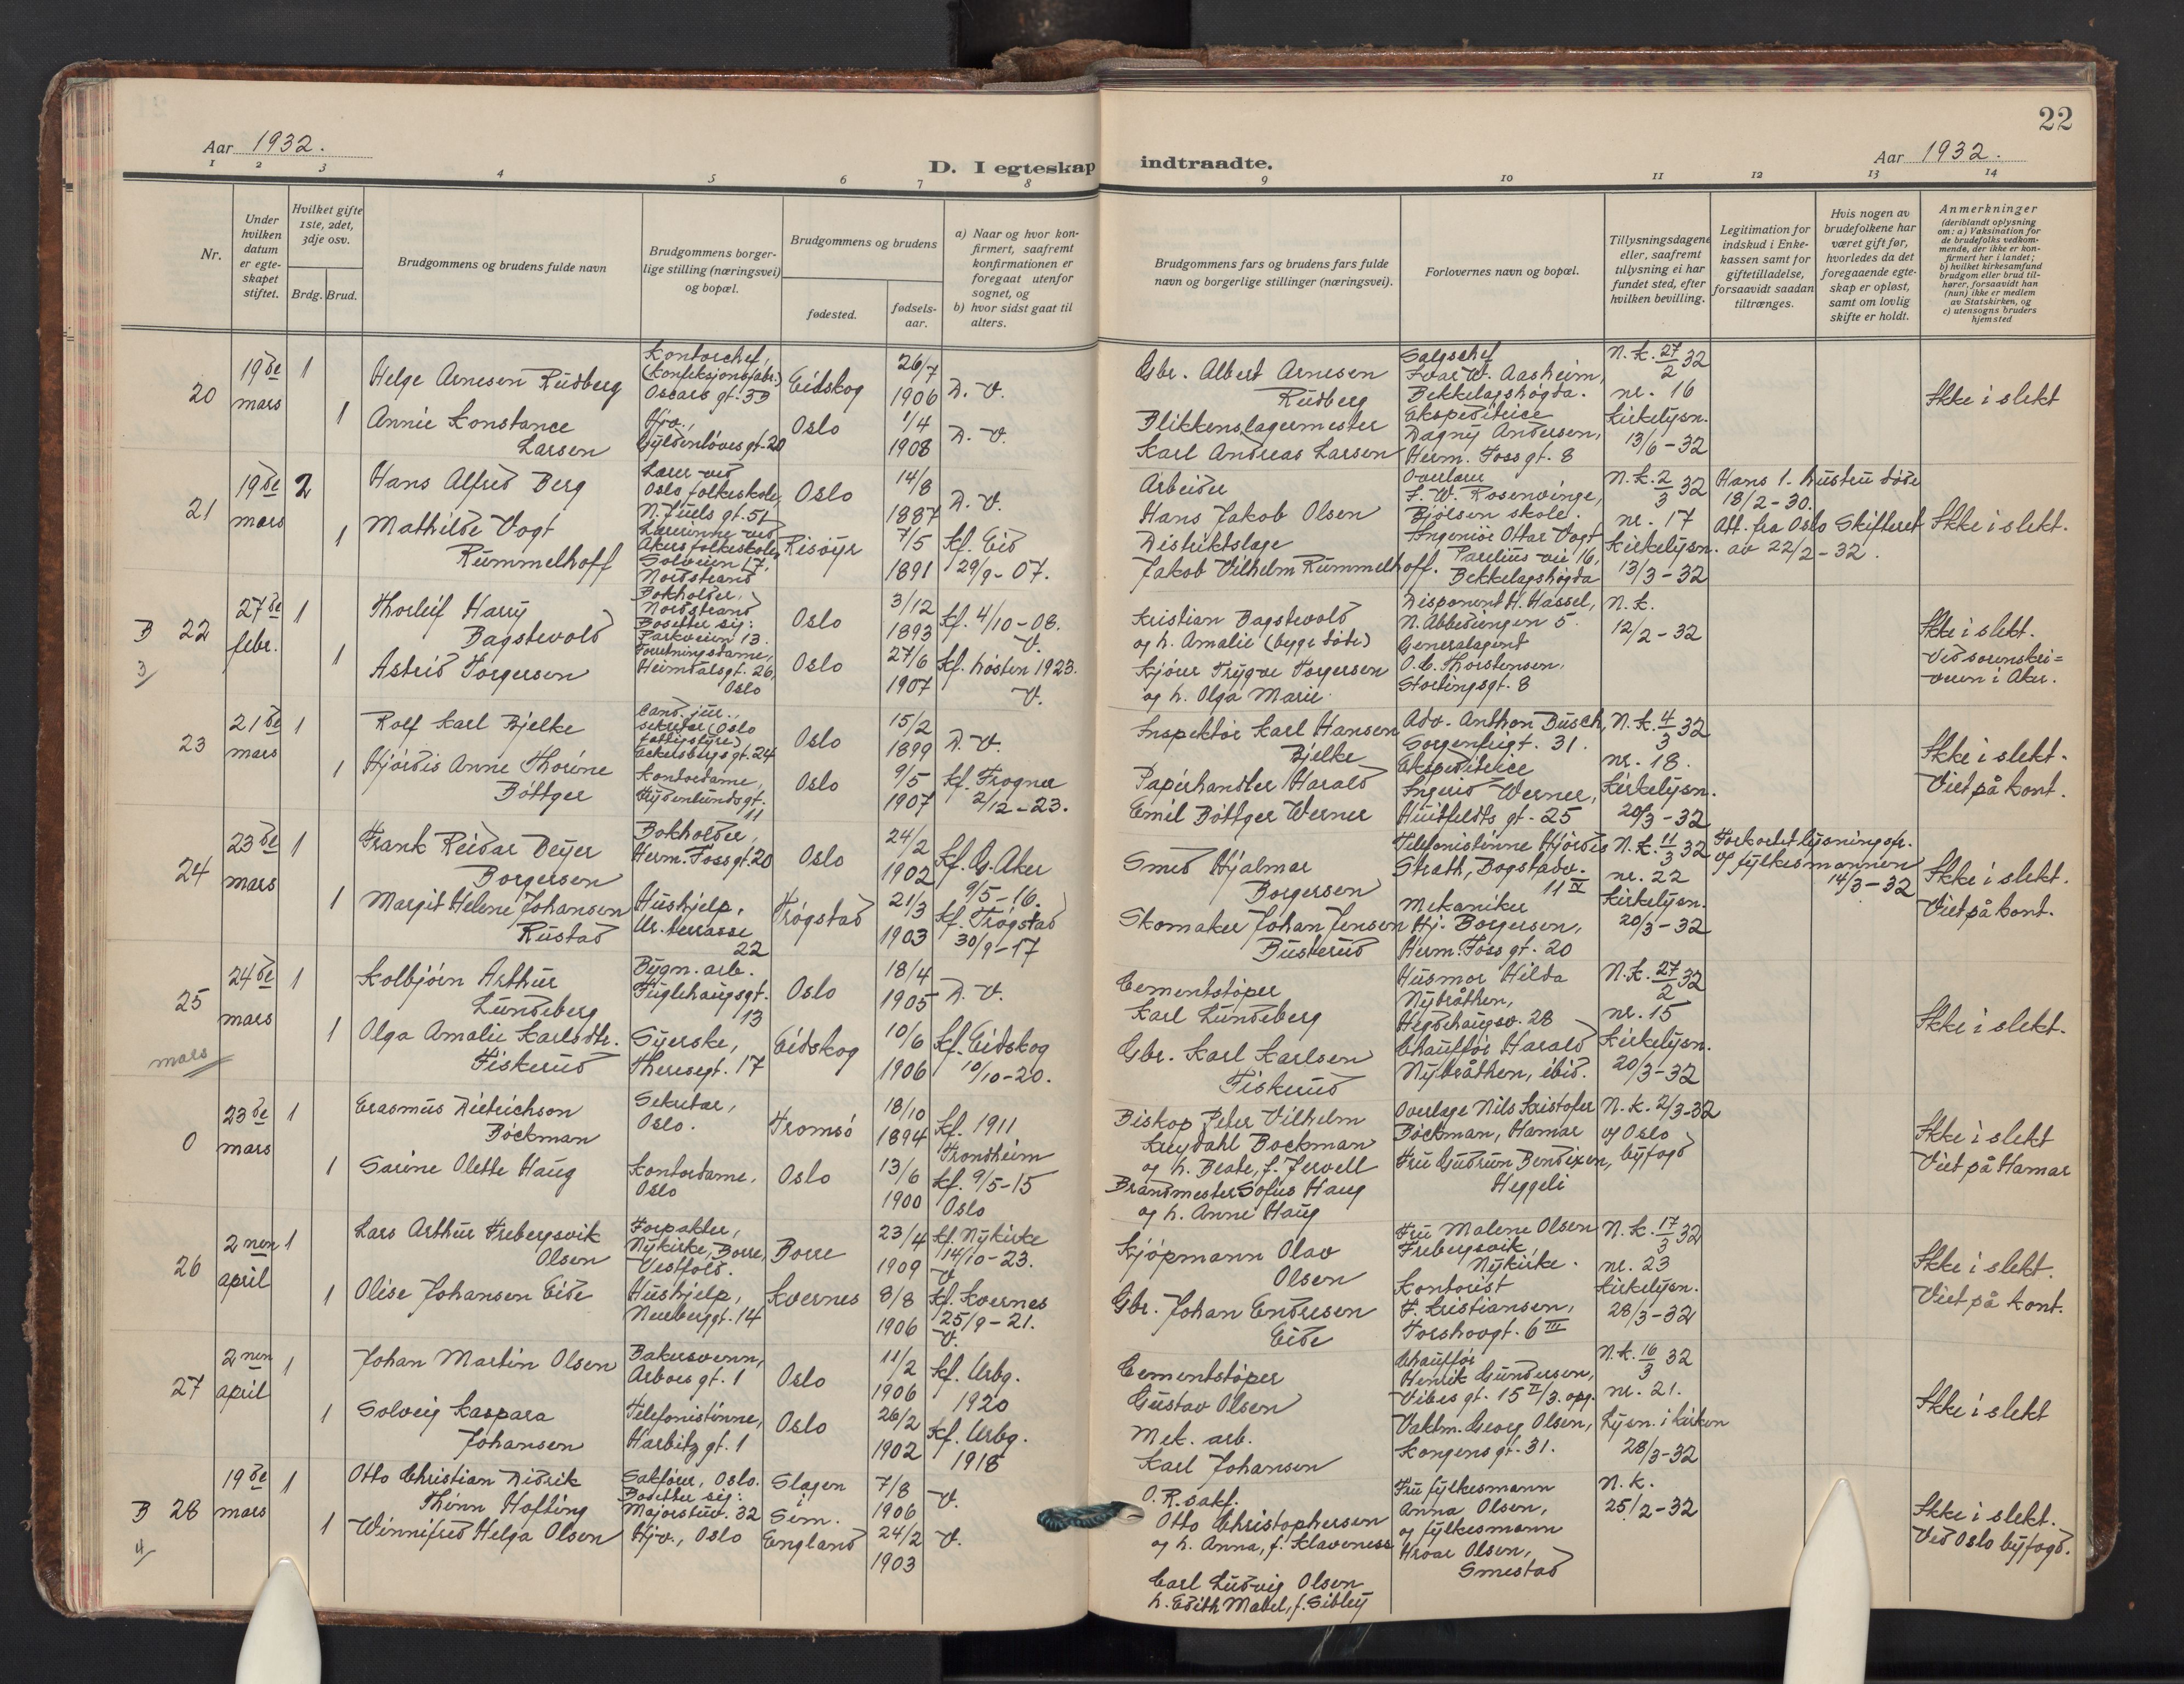 22
Aar 1932.
D. I egteskap indtraadte.
Aar 1932.
1 2 3 4 5 6 7 8 9 10 11 12 13 14
Nr.
Under hvilken datum er egteskapet stiftet.
Hvilket gifte 1ste, 2det, 3dje osv.
Brdg. Brud.
Brudgommens og brudens fulde navn
Brudgommens borgerlige stilling (næringsvei) og bopæl.
Brudgommens og brudens
fødested.
fødselsaar.
a) Naar og hvor konfirmert, saafremt konfirmationen er foregaat utenfor sognet, og
b) hvor sidst gaat til alters.
Brudgommens fars og brudens fars fulde navn og borgerlige stillinger (næringsvei).
Forlovernes navn og bopæl.
Tillysningsdagene eller, saafremt tillysning ei har fundet sted, efter hvilken bevilling.
Legitimation for indskud i Enkekassen samt for giftetilladelse, forsaavidt saadan tiltrænges.
Hvis nogen av brudefolkene har været gift før, hvorledes da det foregaaende egteskap er opløst, samt om lovlig skifte er holdt.
Anmerkninger
(deriblandt oplysning om: a) Vaksination for de brudefolks vedkommende, der ikke er konfirmert her i landet; b) hvilket kirkesamfund brudgom eller brud tilhører, forsaavidt han (hun) ikke er medlem av Statskirken, og c) utensogns bruders hjemsted
20
19de mars
1
Helge Arnesen Rudberg
Kontorchef, (Konfeksjonsfabr.) Oscars gt. 53
Eidskog
26/7 1906
D. V.
Gbr. Albert Arnesen Rudberg
Salgschef Ivar W. Aasheim, Bekkelagshøgda.
N.K. 27/2 32 nr. 16
Ikke i slekt
1
Annie Konstance Larsen
Hjv., Gyldenløves gt. 20
Oslo
1/4 1908
D. V.
Blikkenslagermester Karl Andreas Larsen
Ekspeditrice Dagny Andersen, Herm. Foss gt. 8
Kirkelysn. 13/6-32
21
19de mars
2
Hans Alfred Berg
Lærer ved Oslo folkeskole, N. Juels gt. 51
Oslo
14/8 1887
D. V.
Arbeider Hans Jakob Olsen
Overlærer F. W. Rosenvinge, Bjølsen skole.
N.K. 2/3 32 nr. 17
Hans 1. hustru døde 18/2-30.
Att. fra Oslo Skifteret av 22/2-32.
Ikke i slekt.
1
Mathilde Vogt Rummelhoff
Lærerinne ved Akers folkeskoler, Solveien 17, Nordstrand
Risøyr
7/5 1891
Kf. Eid 29/9-07.
Distriktslæge Jakob Vilhelm Rummelhoff.
Ingeniør Ottar Vogt Parelius vei 16, Bekkelagshøgda
Kirkelysn. 13/3-32
B 22
3/
27de febr.
1
Thorleif Harry Dagstevold
Bokholder, Nordstrand Bosetter sig: Parkveien 13.
Oslo
3/12 1893
Kf. 4/10-08. V.
Kristian Dagstevold og h. Amalie (begge døde)
Disponent H. Hassel, N. Abbediengen 5.
N.K. 12/2-32
Ikke i slekt.
Ved sorenskriveren i Aker.
1
Astrid Torgersen
Forretningsdame, Heimdalsgt. 26, Oslo
Oslo
27/6 1907
Kf. høsten 1923. V.
Kjører Trygve Torgersen og h. Olga Marie
Generalagent O. C. Thorstensen, Stortingsgt. 8
23
21de mars
1
Rolf Karl Bjelke
Cand. jur., sekretær (Oslo fattigstyre) Eckersbergs gt. 24
Oslo
15/2 1899
D. V.
Inspektør Karl Hansen Bjelke
Adv. Anthon Busch, Sorgenfrigt. 31.
N.K. 4/3 32 nr. 18.
Ikke i slekt.
Viet på kont.
1
Hjørdis Anne Thorine Bøttger
Kontordame, Frydenlundsgt. 11
Oslo
9/5 1907
Kf. Frogner 2/12-23.
Papirhandler Harald Emil Bøttger Werner
Ekspeditrice Ingerid Werner, Huitfeldts gt. 25
Kirkelysn. 20/3-32
24
23de mars
1
Frank Reidar Beyer Borgersen
Bokholder, Herm. Foss gt. 20
Oslo
24/2 1902
Kf. V. Aker 9/5-16.
Smed Hjalmar Borgersen
Telefonistinne Hjørdis Strøth, Bogstadv. 11 IV
N.K. 11/3 32 nr. 22
Forkortet lysningsfr. og fylkesmannen 14/3-32
Ikke i slekt.
Viet på kont.
1
Margit Helene Johansen Rustad
Hushjelp, Ur. terrasse 22
Trøgstad
21/3 1903
Kf. Trøgstad 30/9-17
Skomaker Johan Jensen Buskerud
Mekaniker Hj. Borgersen, Herm. Foss gt. 20
Kirkelysn. 20/3-32
25
24de mars
1
Kolbjørn Arthur Lundeberg
Bygn. arb. Fuglehaugsgt. 13
Oslo
18/4 1905
D. V.
Cementstøper Karl Lundeberg
Husmor Hilda Nybråthen, Hegdehaugsv. 28
N.K. 27/2 32 nr. 15
Ikke i slekt.
1
Olga Amalie Karlsdtr. Fiskerud
Syerske, Theresegt. 17
Eidskog
10/6 1906
Kf. Eidskog 10/10-20.
Gbr. Karl Karlsen Fiskerud
Chauffør Harald Nybråthen, ibid.
Kirkelysn. 20/3-32
mars
0
23de mars
1
Erasmus Dietrichson Bøckman
Sekretær, Oslo.
Tromsø
18/10 1894
Kf. 1911 Trondheim
Biskop Peter Vilhelm Kreydahl Bøckman og h. Beate, f. Jervell
Overlæge Nils Kristofer Bøckman, Hamar
N.K. 2/3-32 og Oslo byfogd
Ikke i slekt
Viet på Hamar
1
Sarine Olette Haug
Kontordame, Oslo
Oslo
13/6 1900
Kf. 9/5-15 Oslo
Brandmester Sofus Haug og h. Anne Haug
Fru Gudrun Bendixen, Heggeli
26
2nen april
1
Lars Arthur Frebergsvik Olsen
Forpakter, Nykirke, Borre, Vestfold.
Borre
23/4 1909
Kf. Nykirke 14/10-23. V.
Kjøpmann Olav Olsen
Fru Malene Olsen Frebergsvik Nykirke.
N.K. 17/3 32 nr. 23
Ikke i slekt.
Viet på kont.
1
Olise Johansen Eide
Hushjelp, Neuberggt. 14
Kvernes
8/8 1906
Kf. Kvernes 25/9-21. V.
Gbr. Johan Endresen Eide
Kontorist F. Kristiansen, Torshovgt. 6 III
Kirkelysn. 28/3-32
27
2nen april
1
Johan Martin Olsen
Bakersvenn, Arbos gt. 1
Oslo
11/2 1906
Kf. Urbg. 1920
Cementstøper Gustav Olsen
Chauffør Henrik Gundersen, Vibes gt. 15 II/3. opg.
N.K. 16/3 32 nr. 21.
Ikke i slekt
1
Solveig Kaspara Johansen
Telefonistinne, Harbitz gt. 1
Oslo
26/2 1902
Kf. Urbg. 1918
Mek. arb. Karl Johansen
Vaktm. Georg Olsen, Kongens gt. 31.
Lysn. i kirken 28/3-32
B 28
4/
19de mars
1
Otto Christian Didrik Thinn Hofting
Sakfører, Oslo. Bosetter sig: Majorstuv. 32
Slagen i Sem.
7/8 1906
V.
O.R. sakf. Otto Christophersen og h. Anna, f. Klaveness
Fru fylkesmann Anna Olsen, og fylkesmann Hroar Olsen, Smestad
N.K. 25/2-32
Ikke i slekt.
Ved Oslo byfogd.
1
Winnifred Helga Olsen
Hjv., Oslo
England
24/2 1903
V.
Carl Ludvig Olsen h. Edith Mabel, f. Sibley